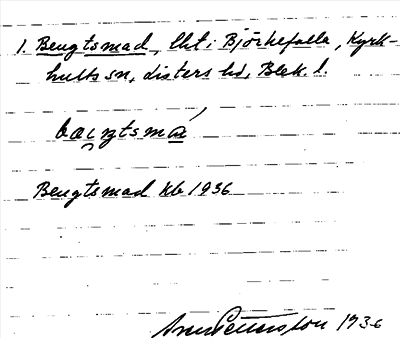 1. Bengtsmad, lht i Björkefalla, Kyrk-
hults sn, Listers hd, Blek. l.
bæi̯ŋtsmá
Bengtsmad kb 1936
1936